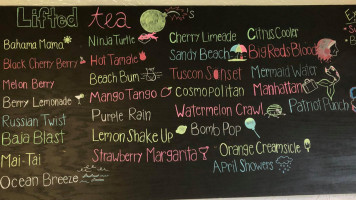 Lifted tea's
Bahama Mama
Black Cherry Berry
Melon Berry
Berry Lemonade
Russian Twist
Baja Blast
Mai-Tai
Ocean Breeze
Ninja Turtle
Hot Tamale
Beach Bum
Mango Tango
Purple Rain
Lemon Shake Up
Strawberry Margarita
Cherry Limeade
Sandy Beach
Tuscon Sunset
Cosmopolitan
Watermelon Crawl
Bomb Pop
Orange Creamsicle
April Showers
Citrus Cooler
Big Reds Blood
Mermaid Water
Manhattan
Patriot Punch